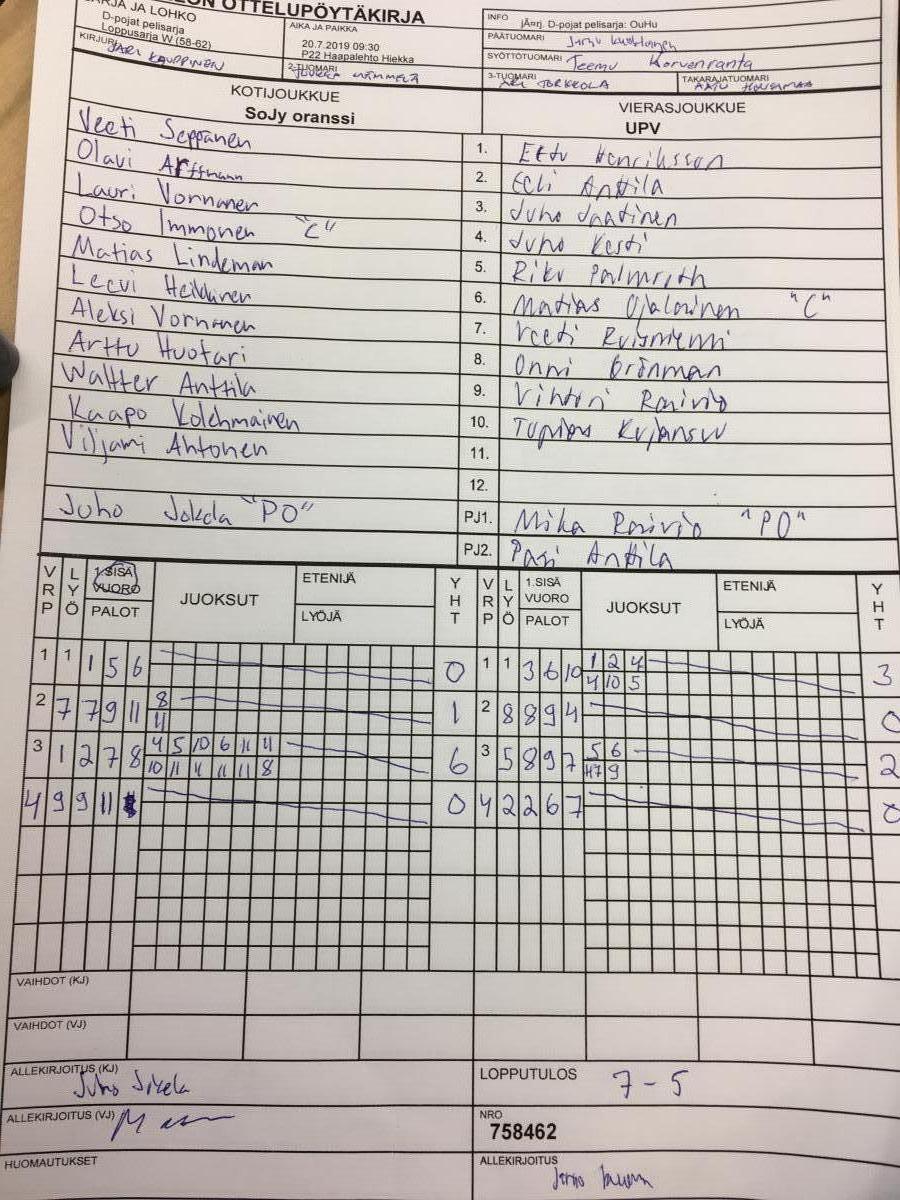 ON OTTELUPÖYTÄKIRJA
ARJA JA LOHKO
D-pojat pelisarja
Loppusarja W (58-62)
AIKA JA PAIKKA
20.7.2019 09:30
P22 Haapalehto Hiekka
INFO
jÄrrj. D-pojat pelisarja: OuHu
PÄÄTUOMARI
KIRJURI JARI KAUPPINEN
2-TUOMARI JUKKA HÄMMELÄ
SYÖTTÖTUOMARI Teemu Korvenranta
3-TUOMARI ARI TORKKOLA
TAKARAJATUOMARI
KOTIJOUKKUE
SoJy oranssi
VIERASJOUKKUE
UPV
Veeti Seppänen 1. Eetu Henriksson
Olavi Arffmann 2. Eeli Anttila
Lauri Vornanen 3. Juho Jaatinen
Otso Immonen "C" 4. Juho Kesti
Matias Lindeman 5. Riku Palmroth
Leevi Heikkinen 6. Matias Ojalainen "C"
Aleksi Vornanen 7. Veeti Ruisniemi
Arttu Huotari 8. Onni Grönman
Waltter Anttila 9. Vihtori Raivio
Kaapo Kolehmainen 10. Topias Kujansuu
Viljami Ahtonen 11.
12.
Juho Jokela "PO" PJ1. Mika Raivio "PO"
PJ2. Pasi Anttila
VRP LYÖ 1.SISÄ VUORO PALOT JUOKSUT ETENIJÄ LYÖJÄ YHT VRP LYÖ 1.SISÄ VUORO PALOT JUOKSUT ETENIJÄ LYÖJÄ YHT
1 1 1 5 6 0 1 1 3 6 10 1 2 4 3
4 10 5
2 7 7 9 11 8 1 2 8 8 9 4 0
11
3 1 2 7 8 4 5 10 6 11 4 6 3 5 8 9 7 5 6 2
10 11 11 11 11 8 9
4 9 9 11 0 4 2 2 6 7 0
VAIHDOT (KJ)
VAIHDOT (VJ)
ALLEKIRJOITUS (KJ) Juho Jokela
LOPPUTULOS 7-5
ALLEKIRJOITUS (VJ)
NRO
758462
HUOMAUTUKSET
ALLEKIRJOITUS